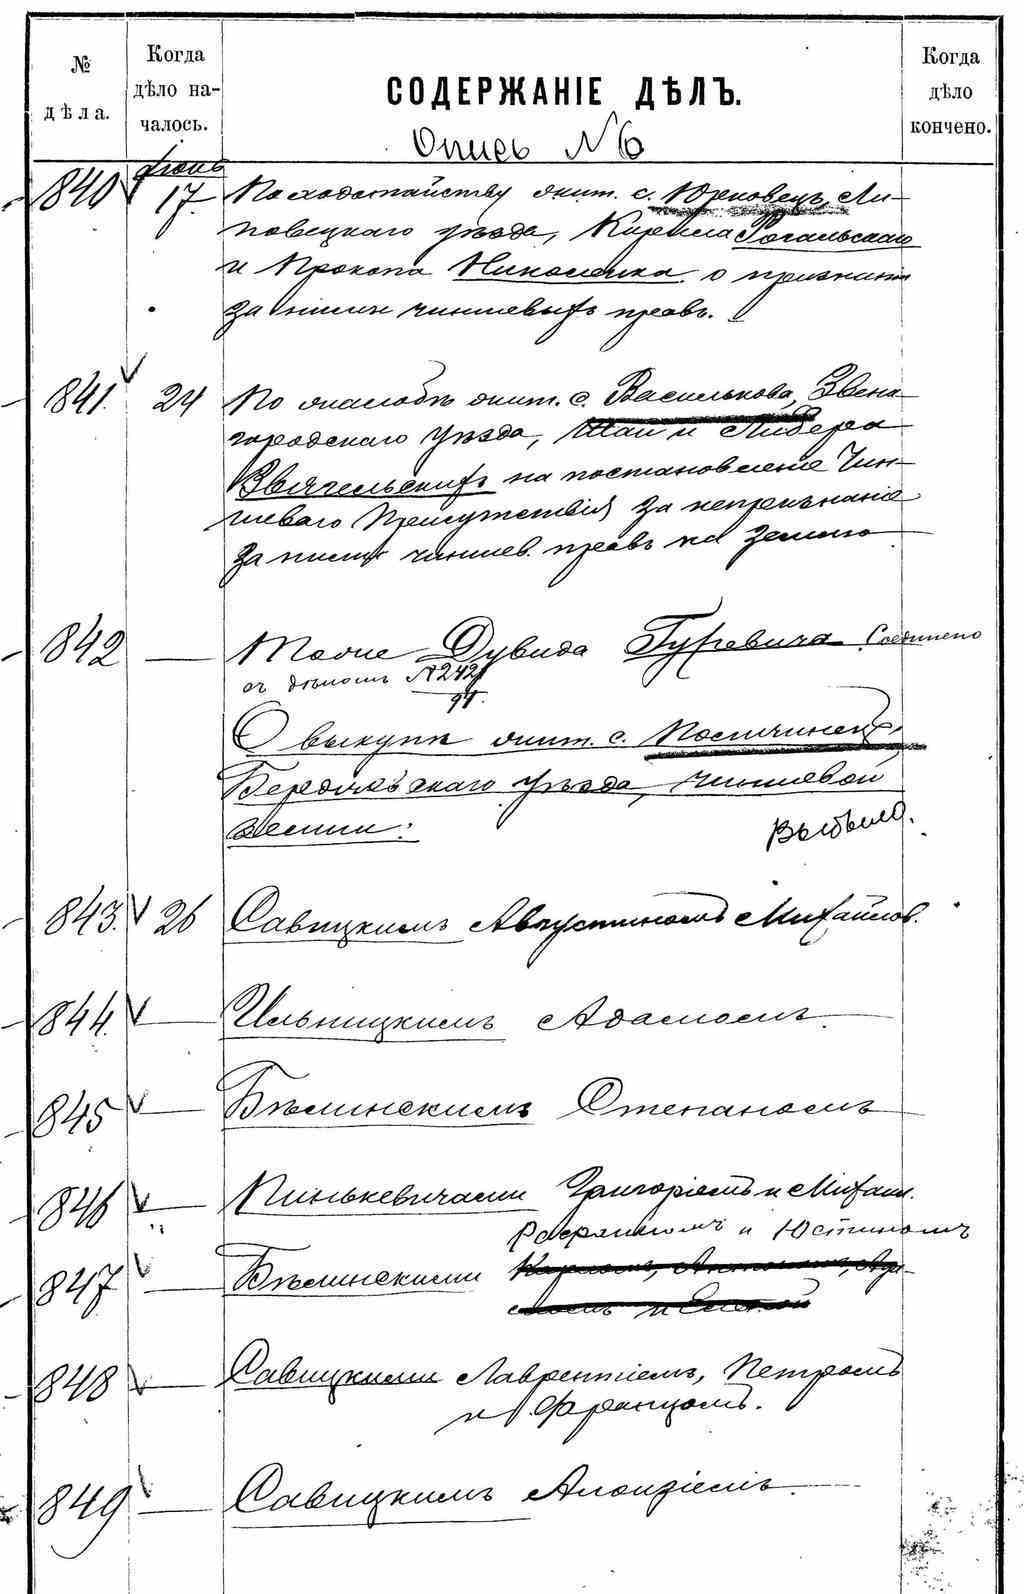 №
дѣла.
Когда
дѣло на-
чалось.
СОДЕРЖАНІЕ ДѢЛЪ.
Когда
дѣло
кончено.
Опись № 6
840 17. По ходатайству жит. с. Юрковецъ, Ли-
повецкаго уѣзда, Кирила Рогальскаго
и Прокопа Николайчика о признаніи
за ними чиншевыхъ правъ.
841. 24 По жалобѣ жит. с. Василькова, Звени-
городскаго уѣзда, Шаи и Лидера
Звягельскихъ на постановленіе Чин-
шеваго Присутствія за непризнаніе
за ними чиншев. правъ на землю
842 — Тоже Дувида Гуревича. Соединено
съ дѣломъ № 242
94.
О выкупѣ жит. с. Поличинецъ,
Бердичевскаго уѣзда, чиншевой
земли:
Выбыло.
843. 26 Савицкимъ Августиномъ Михайлов.
844. — Ильницкимъ Адамомъ.
845 — Бѣлинскимъ Степаномъ
846 — Пинькевичами Григоріемъ и Михаил.
и Юстиномъ
847 — Бѣлинскими Карломъ, Антономъ, Ада-
момъ и
848 — Савицкими Лаврентіемъ, Петромъ
и Францомъ.
849 — Савицкимъ Алоизіемъ.